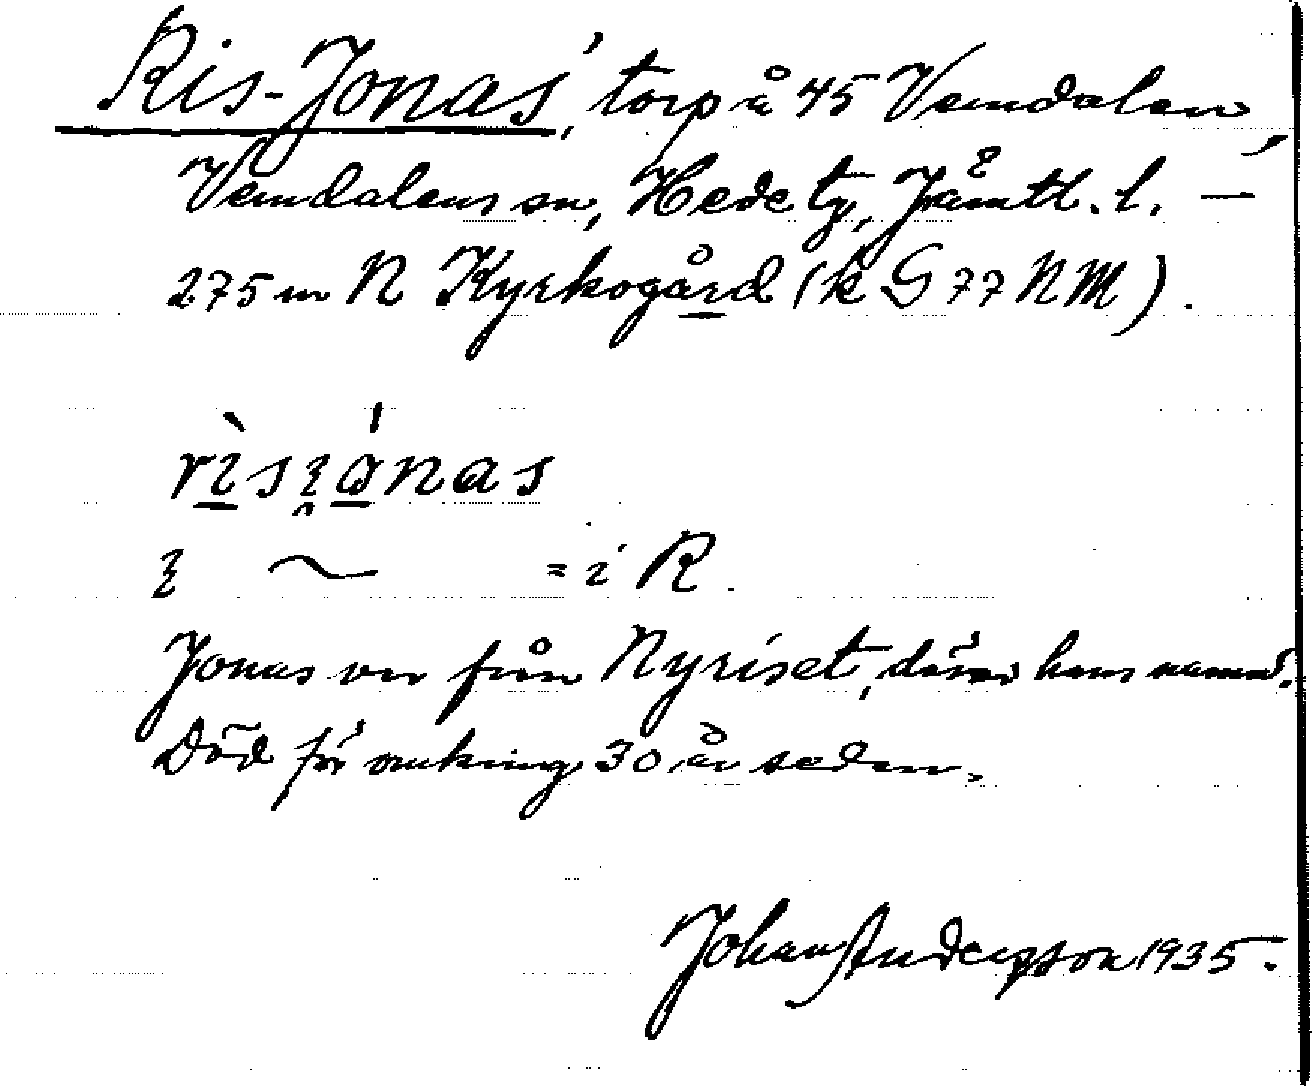 Ris-Jonas', torp å 45 Vemdalen,
Vemdalens sn, Hede tg, Jämtl. l. —
275 m N Kyrkogård (k G 77 NM).
rìsi̯ánas
~ = i R.
Jonas var från Nyriset, därav hans namn.
Död för omkring 30 år sedan.
Johan Andersson 1935.